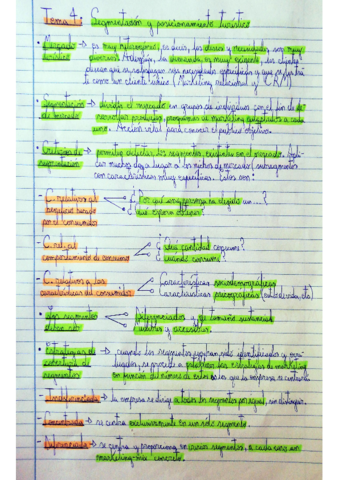 Tema 4: Segmentación y posicionamiento turístico
• Mercado → es muy heterogéneo, es decir, los deseos y necesidades son muy
turístico diversos. Además, la demanda es muy exigente, los clientes
desean que se satisfagan sus necesidades específicas y que se les trate
como un cliente único (Marketing relacional y CRM)
• Segmentación → dividir el mercado en grupos de individuos con el fin de
de mercado productos, programas de marketing ajustados a cada
uno. Acción vital para conocer el público objetivo.
• Criterios de → permiten detectar los segmentos existentes en el mercado.
segmentación muchos de a lugar a los nichos de mercado: subsegmentos
con características muy específicas. Estos son:
- C. relativos al ¿Por qué una persona ha elegido un...?
beneficio buscado ¿Qué espera obtener?
por el consumidor
- C. rel. al ¿Qué cantidad consume?
comportamiento de consumo ¿Cuándo consume?
- C. relativos a las Características sociodemográficas
características del consumidor Características psicográficas
• Los segmentos Diferenciados y de tamaño sustancial
deben ser Medibles y accesibles.
• Estrategias de → cuando los segmentos ya han sido identificados y
cobertura de se procede a establecer las estrategias de marketing
segmentos en función del número de estos en los que la empresa se centrará
- Indiferenciada → la empresa se dirige a todos los segmentos por igual, sin distinguir.
- Concentrada → se centra exclusivamente en un sólo segmento.
- Diferenciada → se centra y proporciona en varios segmentos, a cada uno un
marketing-mix concreto.